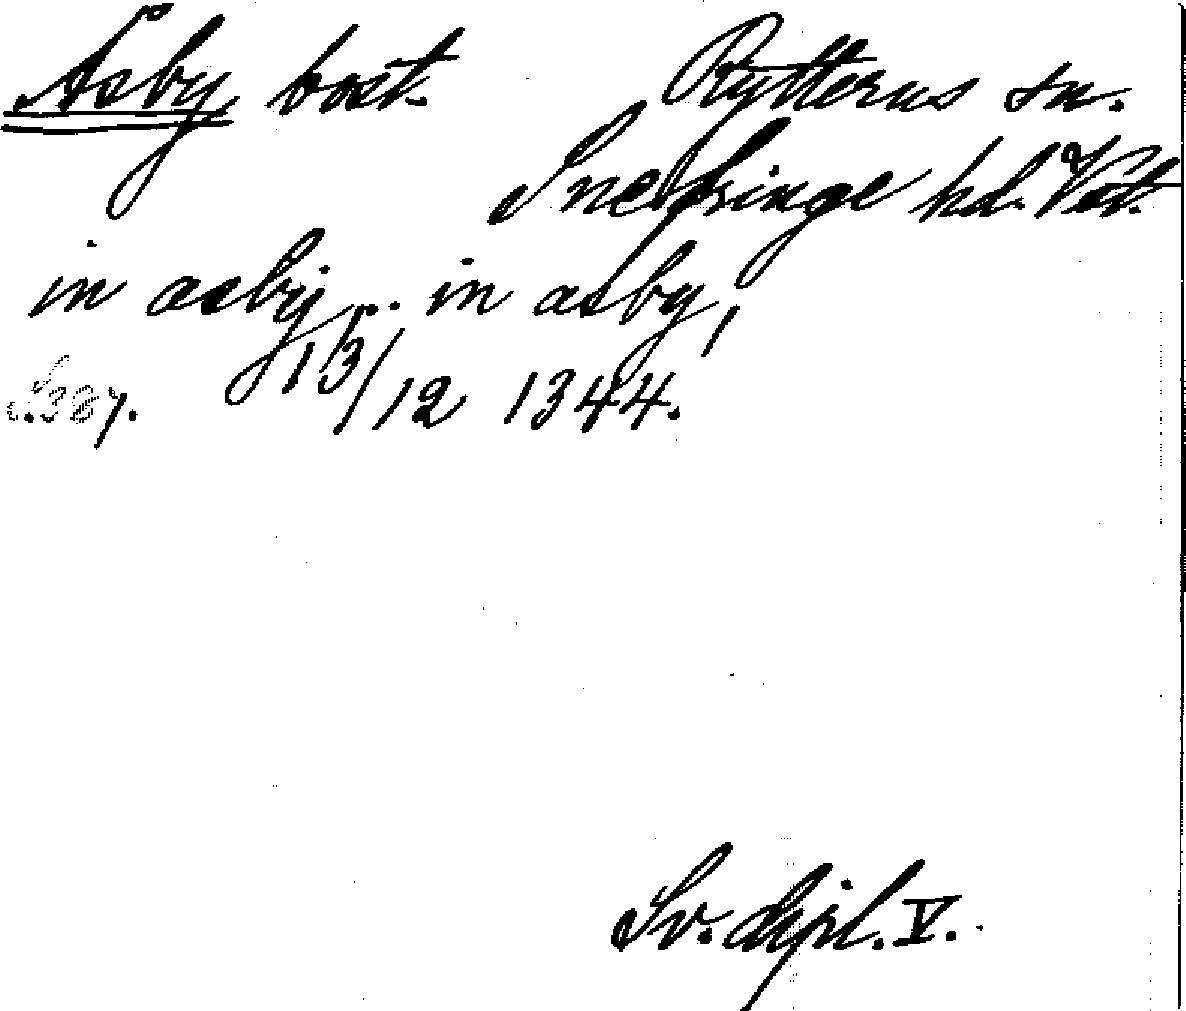 Åsby bost. Rytterns sn.
Snefringe hd. Vstl.
in asby... in asby!
S. 387. 13/12 1344.
Sv. dipl. V.